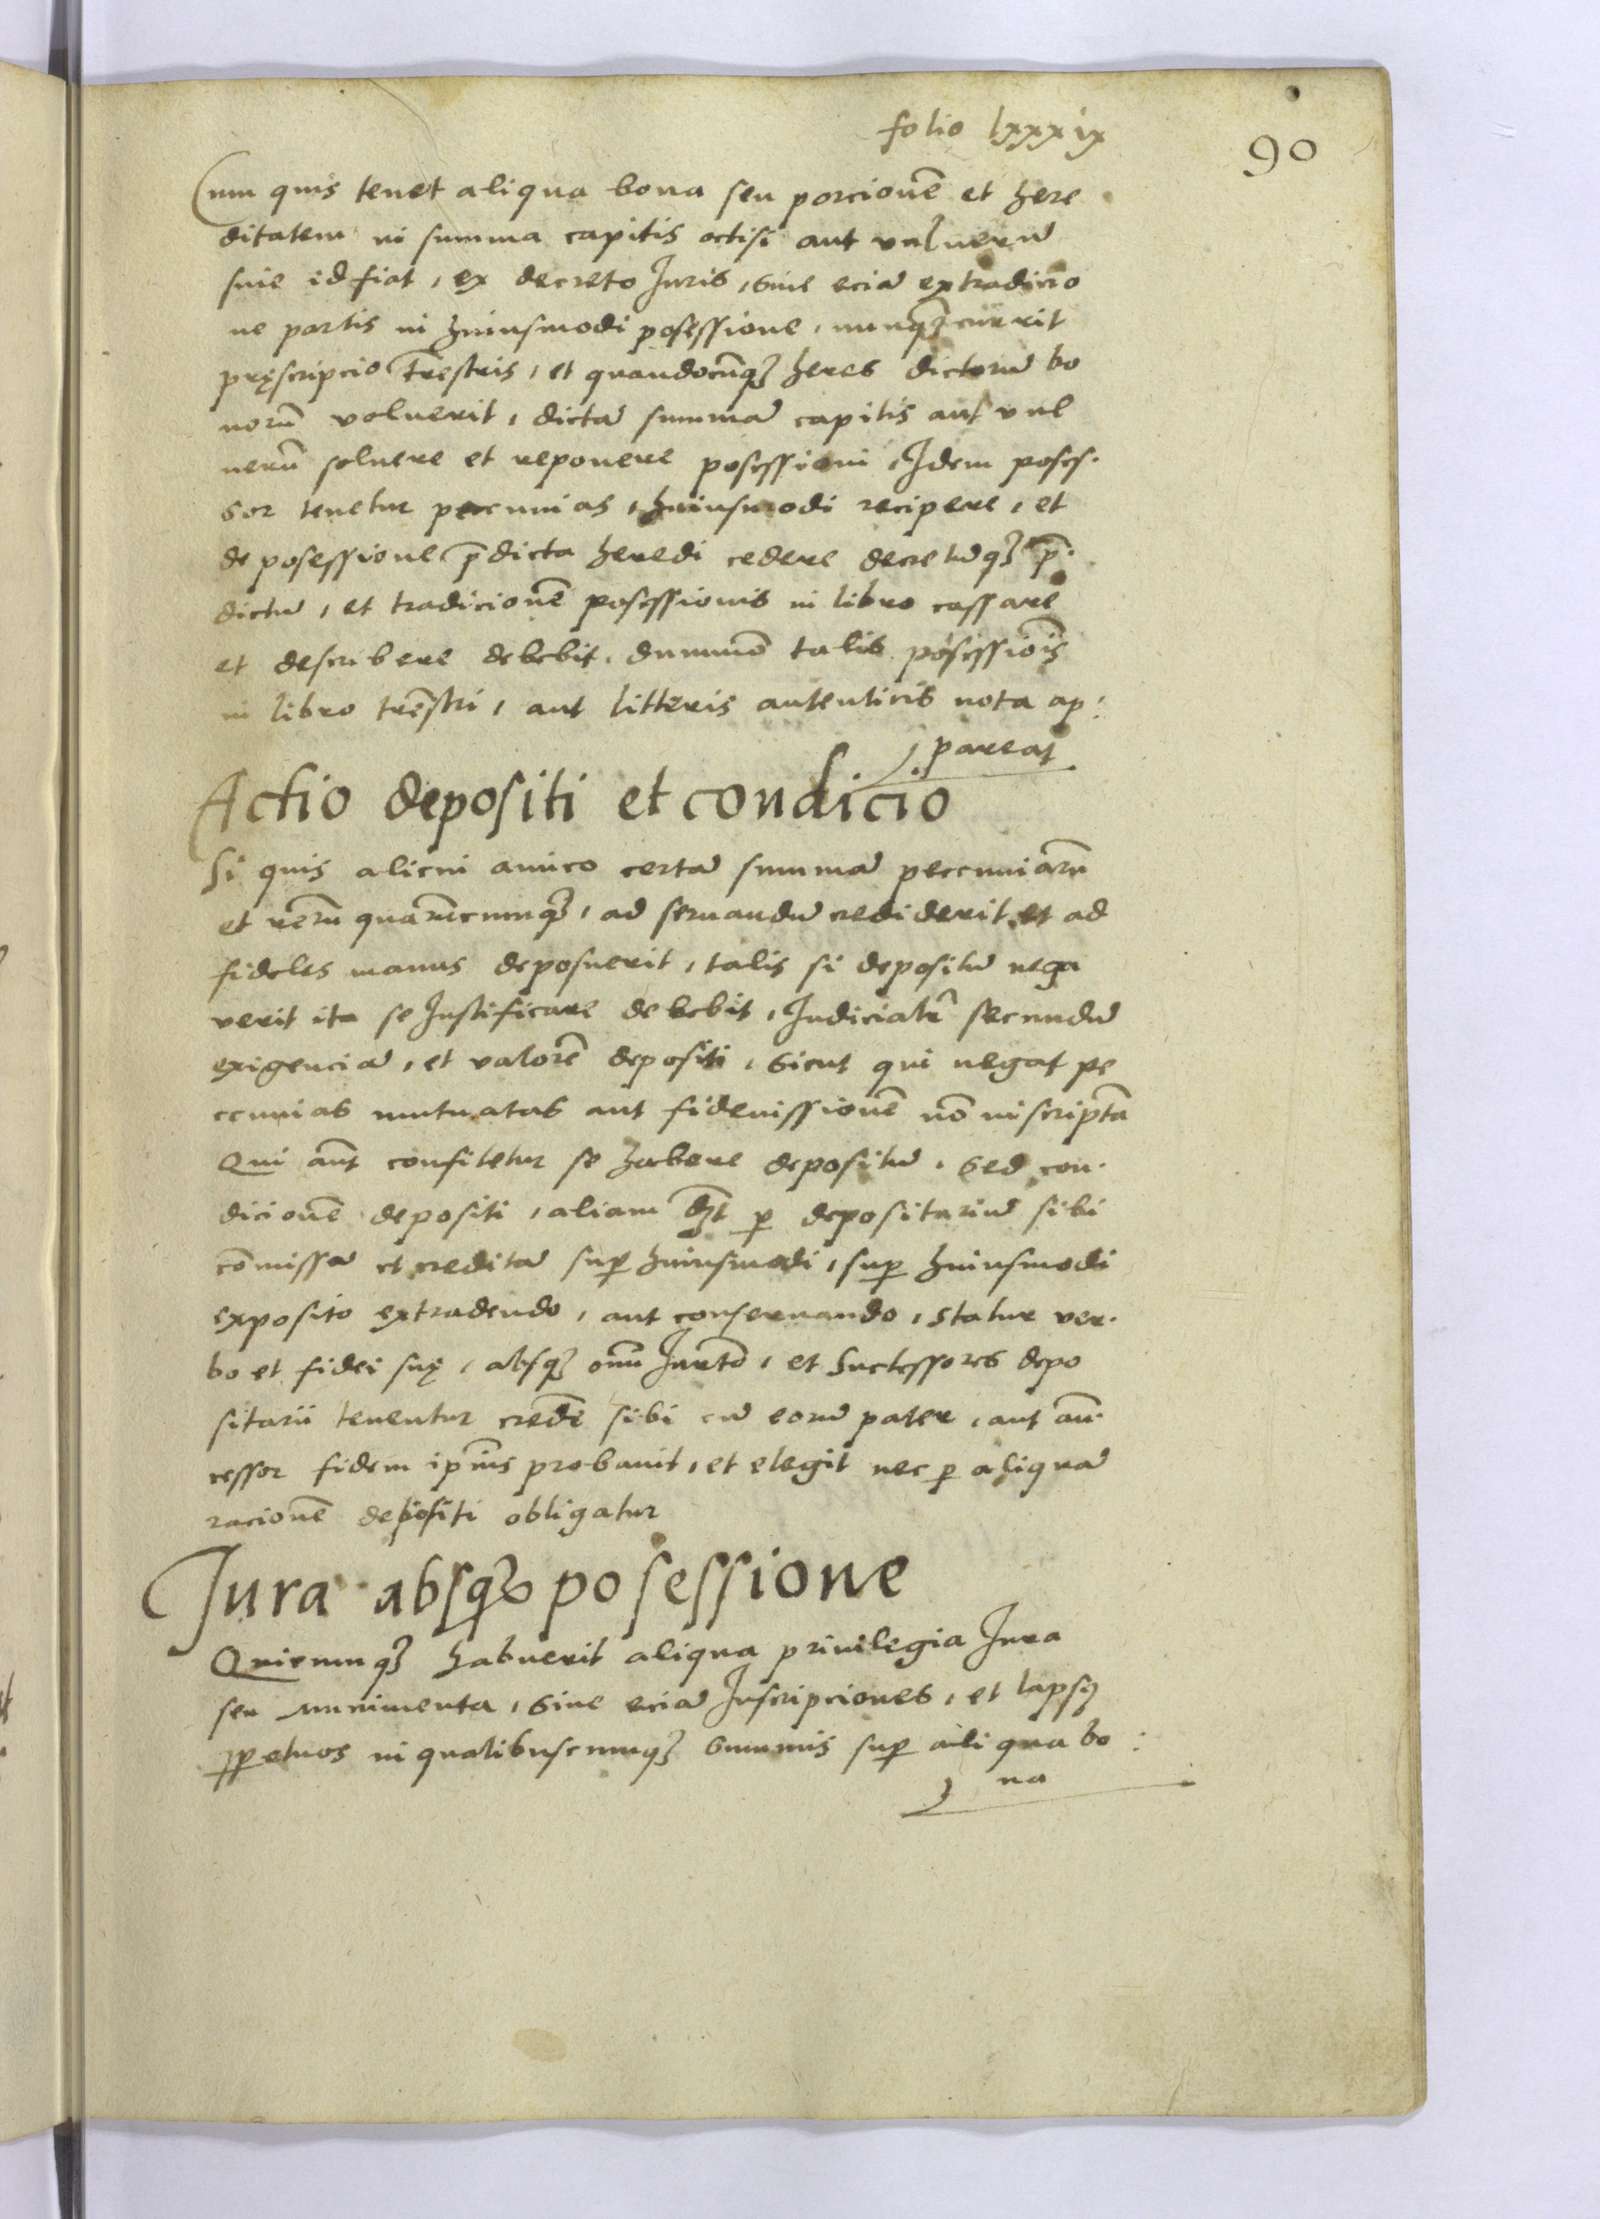 folio lxxxix
90
Cum quis tenet aliqua bona seu porcionē et here
ditatem in summa capitis octisi aut vulnerū
siue id fiat, ex decreto Juris, siue eciā extradicio
ne partis in huiusmodi posessione, nunq̄ currit
pręscripcio tr̄estris, et quandocūqȝ heres dictorū bo
norū voluerit, dictā summā capitis aut vul
nerū soluere et reponere posessioni, Idem poses.
sor tenetur peccunias, huiusmodi recipere, et
de posessione p̄dicta heredi cedere decretūqȝ p̄.
dictū, et tradicionē posessionis in libro cassare
et describere debebit. dummō talis posessiōis
in libro trēstri, aut litteris autenticis nota ap:
pareat
Actio depositi et condicio
Si quis alicui amico certā summā peccuniarū
et rerū quarūcunqȝ, ad seruandū crediderit et ad
fideles manus deposuerit, talis si depositū nega
verit ita se Justificare debebit, Judicialr̄ secundū
exigenciā, et valorē depositi, sicut qui negat pe
ccunias mutuatas aut fideiussionē nō inscriptā
Qui aūt confitetur se habere depositū, sed con.
dicionē depositi, aliam d̄ꝫt ꝑ depositariū sibi
cōmissā et creditā suꝑ huiusmodi, suꝑ huiusmodi
exposito extradendo, aut conseruando, statur ver.
bo et fidei suę, absqȝ om̄i Jurmtō, et Successores depo
sitarii tenentur credē sibi cū eorū pater, aut an̄.
cessor fidem ip̄ius probauit, et elegit nec ꝑ aliquā
racionē depositi obligatur
Jura absqȝ posessione
Quicunqȝ habuerit aliqua priuilegia Jura
seu munimenta, siue eciā Inscripciones, et lapsȝ
ꝑpetuos in qualibuscunqȝ summis suꝑ aliqua bo:
na